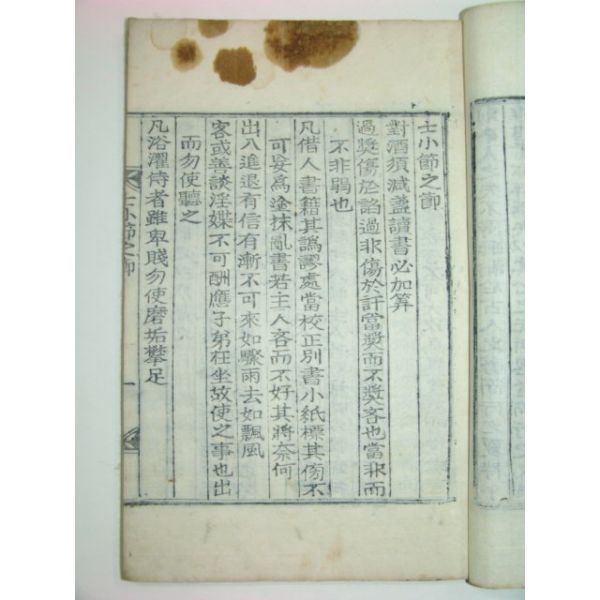 士小節之節
對酒須減盞讀書必加算
過奬傷於諂過非傷於訐當奬而不奬客也當非而
不非弱也
凡借人書籍其譌謬處當校正別書小紙標其傍不
可妄爲塗抹亂書若主人客而不好其將奈何
出入進退有信有漸不可來如驟雨去如飄風
客或善談淫媟不可酬應子弟在坐故使之事也出
而勿使聽之
凡浴濯侍者雖卑賤勿使磨垢攀足
士小節之節
一